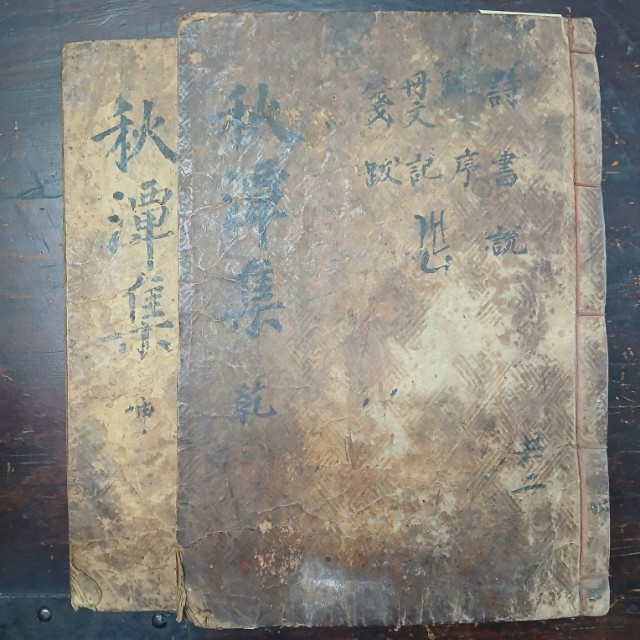 詩書說
序
冊文記
箋跋
秋潭集乾
秋潭集坤
共二